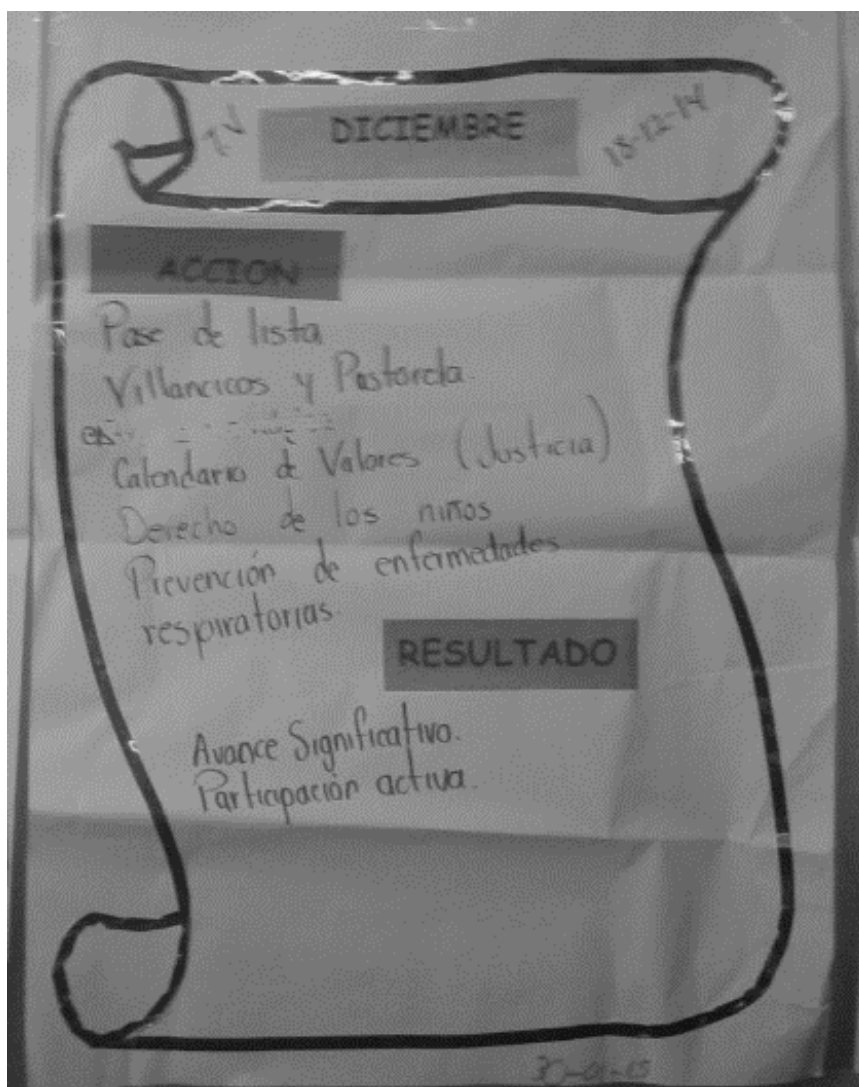 T.V DICIEMBRE 18-12-14
ACCION
Pase de lista
Villancicos y Pastorela.
Calendario de Valores (Justicia)
Derecho de los niños
Prevención de enfermedades
respiratorias.
RESULTADO
Avance Significativo.
Participación activa.